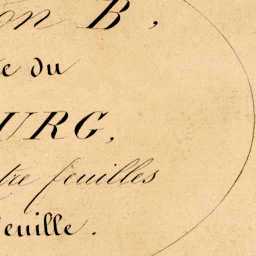 on B,
e du
URG,
tre feuilles
euille.